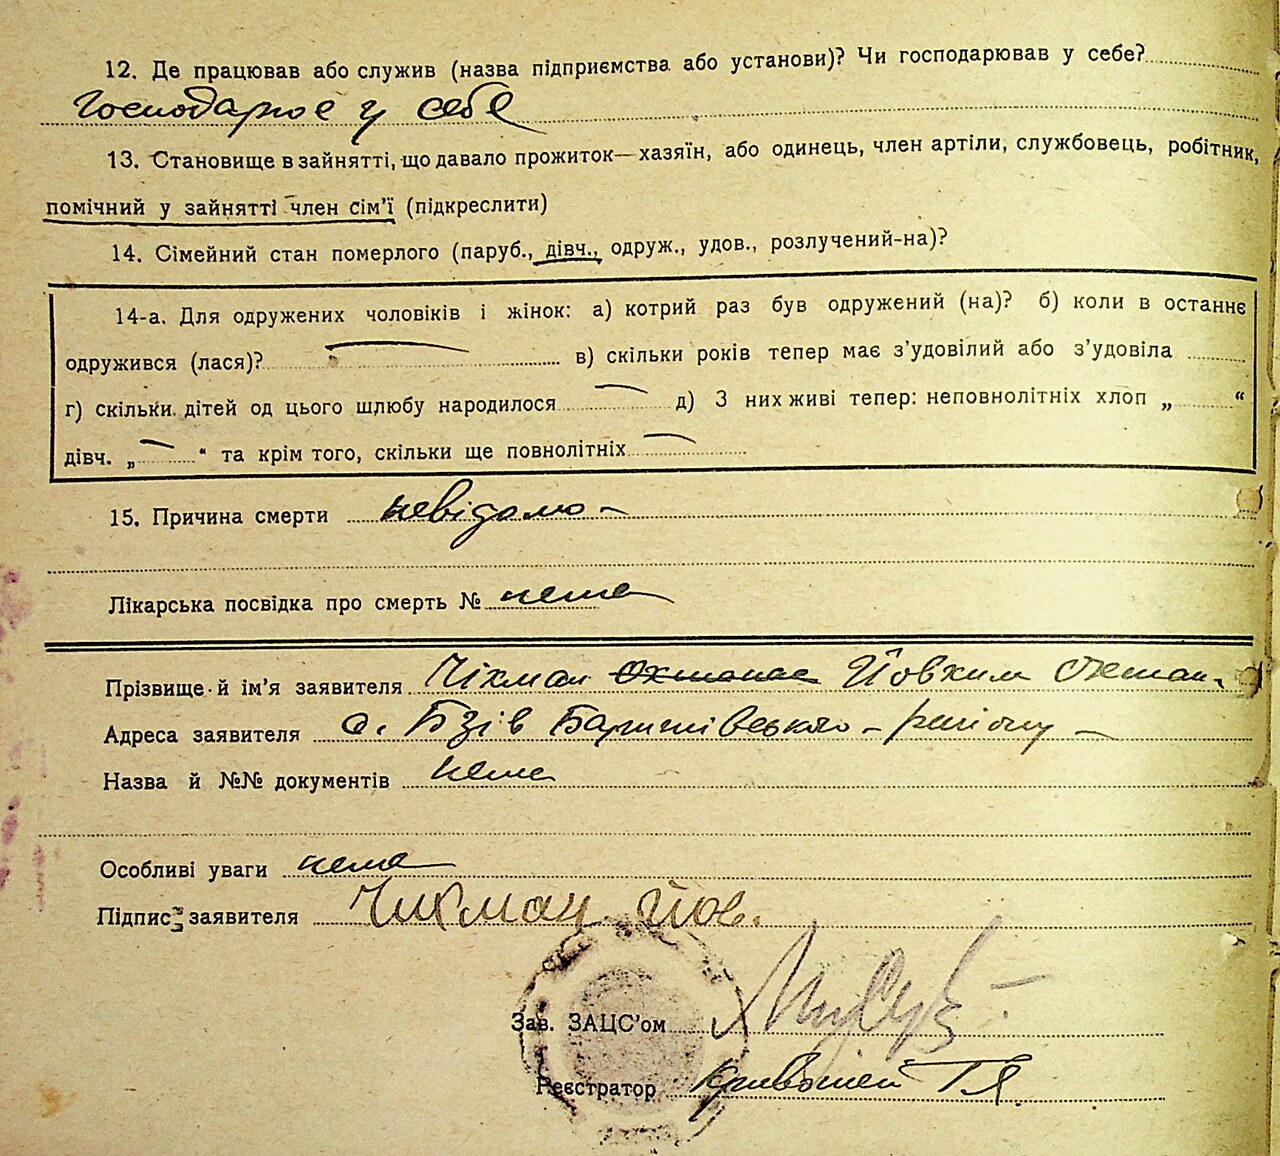 12. Де працював або служив (назва підприємства або установи)? Чи господарював у себе?
Господарює у себе
13. Становище в зайнятті, що давало прожиток—хазяїн, або одинець, член артіли, службовець, робітник,
помічний у зайнятті член сім'ї (підкреслити)
14. Сімейний стан померлого (паруб., дівч., одруж., удов., розлучений-на)?
14-а. Для одружених чоловіків і жінок: а) котрий раз був одружений (на)? б) коли в останнє
одружився (лася)? в) скільки років тепер має з'удовілий або з'удовіла
г) скільки дітей од цього шлюбу народилося д) З них живі тепер: неповнолітніх хлоп „ “
дівч. „ “ та крім того, скільки ще повнолітніх
15. Причина смерти невідомо -
Лікарська посвідка про смерть № нема
Прізвище й ім'я заявителя Чікман Йовхим Охтан.
Адреса заявителя с. Бзів Баришівського - району -
Назва й №№ документів нема
Особливі уваги нема
Підпис заявителя Чикман Йов.
Зав. ЗАЦС'ом
Реєстратор Кривошей Г. Я.